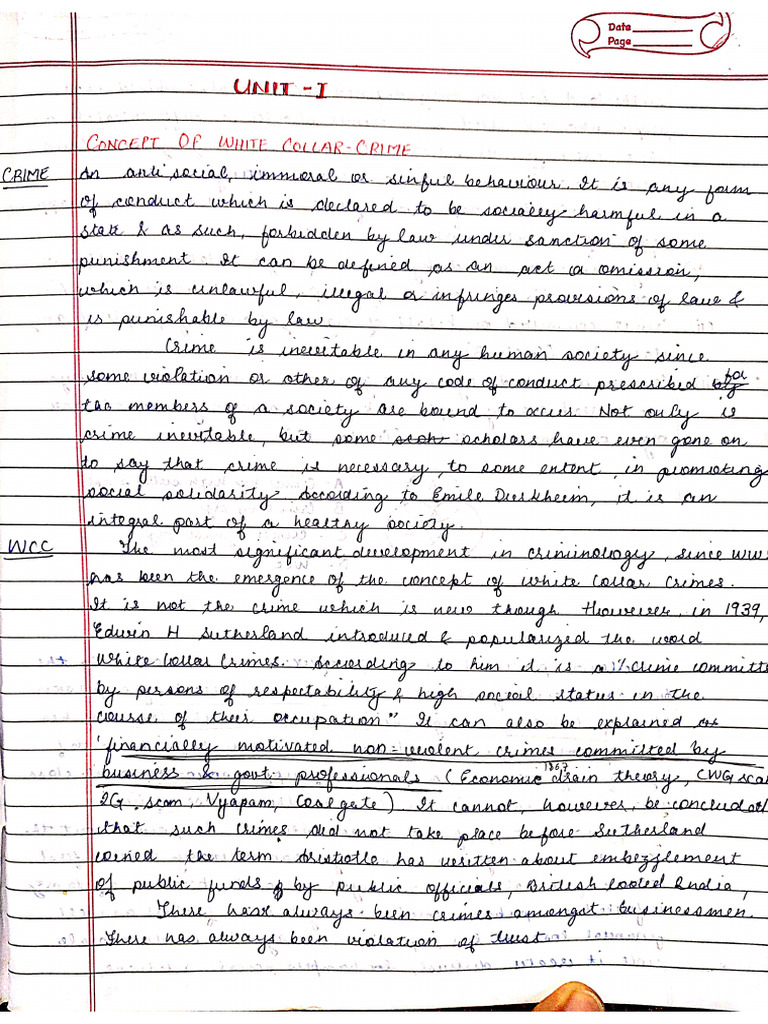 Date
Page
UNIT - I
CONCEPT OF WHITE COLLAR-CRIME
CRIME An anti social, immoral or sinful behaviour. It is any form
of conduct which is declared to be socially harmful in a
state & as such, forbidden by law under sanction of some
punishment. It can be defined as an act or omission,
which is unlawful, illegal or infringes provisions of law &
is punishable by law.
Crime is inevitable in any human society since
some violation or other of any code of conduct prescribed for
the members of a society are bound to occur. Not only is
crime inevitable, but some scholars have even gone on
to say that crime is necessary, to some extent, in promoting
social solidarity. According to Emile Durkheim, it is an
integral part of a healthy society.
WCC The most significant development in criminology, since WW
has been the emergence of the concept of White Collar Crimes.
It is not the crime which is new though. However, in 1939,
Edwin H Sutherland introduced & popularized the word
White Collar Crimes. According to him it is a "Crime committe
by persons of respectability & high social status in the
course of their occupation" It can also be explained as
'financially motivated non-violent crimes committed by
business & govt professionals (Economic 1867 drain theory, CWG sca
2G scam, Vyapam, Coalgate) It cannot, however, be concluded
that such crimes did not take place before Sutherland
coined the term Aristotle has written about embezzlement
of public funds by public officials, British looted India,
There has always been crimes amongst businessmen.
There has always been violation of trust.